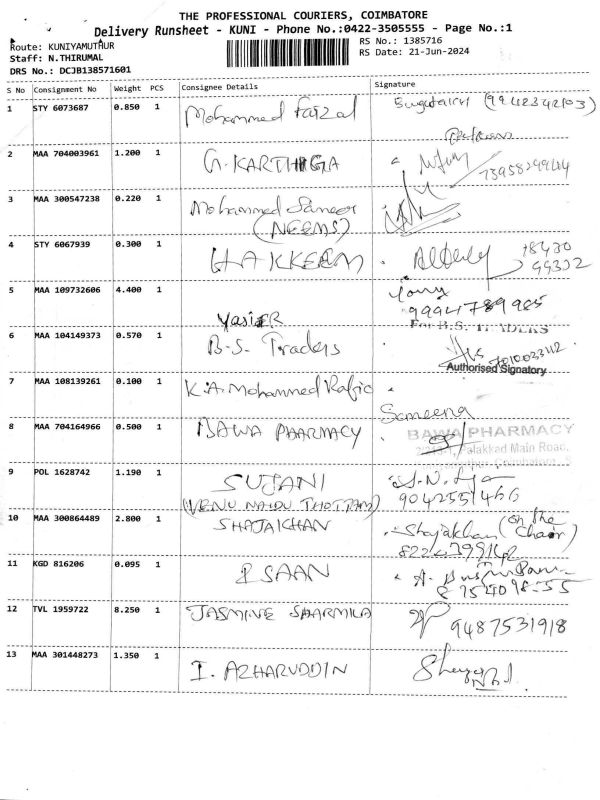 THE PROFESSIONAL COURIERS, COIMBATORE
Delivery Runsheet - KUNI - Phone No.:0422-3505555 - Page No.:1
Route: KUNIYAMUTHUR
Staff: N.THIRUMAL
DRS No.: DCJB138571601
RS No.: 1385716
RS Date: 21-Jun-2024
S No Consignment No Weight PCS Consignee Details Signature
1 STY 6073687 0.850 1 Mohammed Faizal (9942342103)
2 MAA 704003961 1.200 1 G. KARTHIGA
3 MAA 300547238 0.220 1 Mohammed Sameer
(NEEMS)
4 STY 6067939 0.300 1 HAKKEEM
5 MAA 109732606 4.400 1 Yasier 9994789985
6 MAA 104149373 0.570 1 B.S. Traders For B.S. TRADERS
Authorised Signatory
7 MAA 108139261 0.100 1 K.A. Mohammed Rafic Sameena
8 MAA 704164966 0.500 1 BAWA PHARMACY BAWA PHARMACY
Palakkad Main Road,
9 POL 1628742 1.190 1 SUJANI
(VENU NAIDU THOTTAM) 9042551466
10 MAA 300864489 2.800 1 SHAJAICHAN Shajakhan (on the Chair)
11 KGD 816206 0.095 1 SAAN
12 TVL 1959722 8.250 1 JASMINE SHARMILA 9487531918
13 MAA 301448273 1.350 1 I. AZHARUDDIN